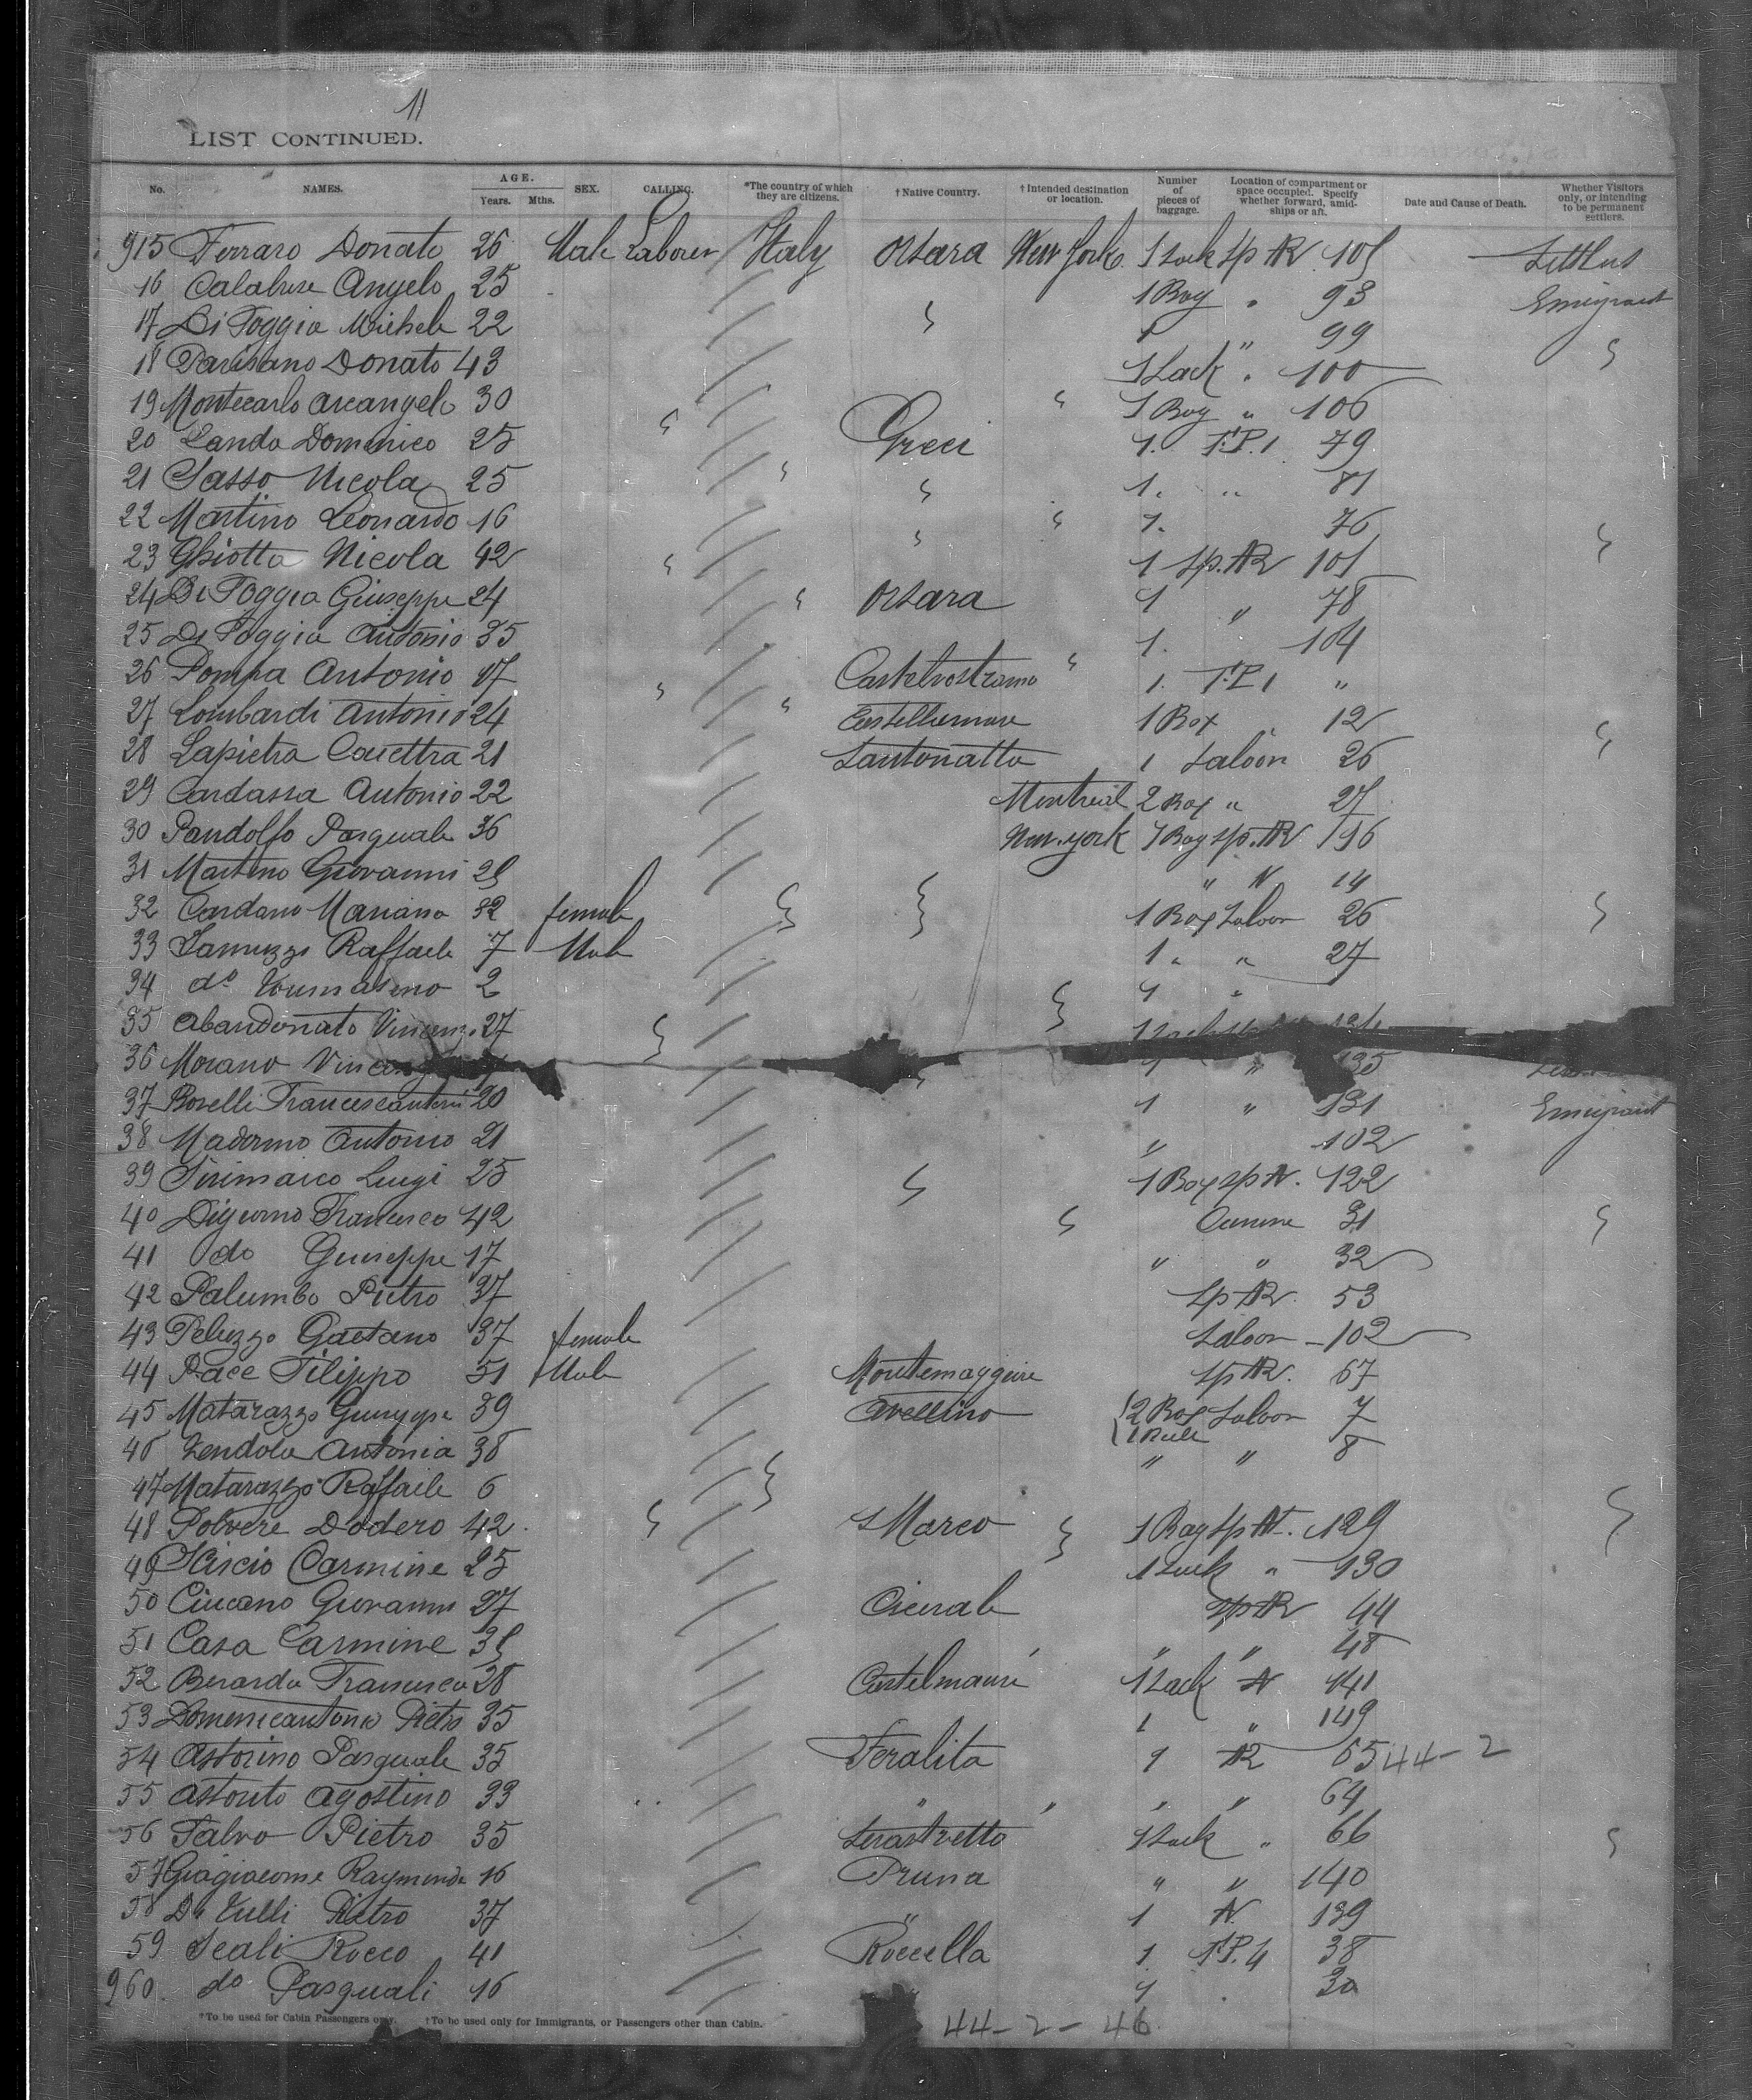 11
LIST CONTINUED.
No. NAMES. AGE. Years. Mths. SEX. CALLING. *The country of which they are citizens. †Native Country. †Intended destination or location. Number of pieces of baggage. Location of compartment or space occupied. Specify whether forward, amidships or aft. Date and Cause of Death. Whether Visitors only, or intending to be permanent settlers.
915 Ferraro Donato 26 Male Laborer Italy Orsara New York 1 Sack Sp 105
16 Calabrese Angelo 25 1 Bag " 93 Emigrant
17 Di Foggia Michele 22 1 " 99
18 Parisano Donato 43 1 Sack " 100
19 Montecarlo Arcangelo 30 1 Bag " 106
20 Landa Domenico 25 Greci 1. T.P.1 79
21 Sasso Nicola 25 1. " 81
22 Martino Leonardo 16 1. 76
23 Ghiotta Nicola 42 1 Sp. 101
24 Di Foggia Giuseppe 24 Orsara 1 " 78
25 Di Foggia Antonio 35 1. 104
26 Pompa Antonio 17 1. T.P.1 "
27 Lombardi Antonio 24 Castellamare 1 Box " 12
28 Lapietra 21 1 Saloon 26
29 Cardassa Antonio 22 Montreal 2 Box " 27
30 Pandolfo Pasquale 36 New-York 1 Bag Sp. 196
31 Martino Giovanni 25 " N 14
32 Cardano Mariana 32 female 1 Box Saloon 26
33 Raffaele 7 Male 1 " " 27
34 do Tommaseno 2 1 "
35 Abandonato Vincenzo 27
36 Morano 1 " 135
37 Borelli Francescantonio 20 1 " 131 Emigrant
38 Madormo Antonio 21 " 102
39 Sirimarco Luigi 25 1 Box Sp N. 122
40 Digiorno Francesco 42 31
41 do Giuseppe 17 " " 32
42 Palumbo Pietro 37 Sp 53
43 Peluzzo Gaetano 37 female Saloon 102
44 Pace Filippo 51 Male Montemaggiore Sp 67
45 Matarazzo Giuseppe 39 Avellino 2 Box Saloon 7
1
46 Zendola Antonia 38 " " 8
47 Matarazzo Raffaele 6
48 Polvere Dodero 42 S Marco 1 Bag Sp N. 129
49 Sciscio Carmine 25 1 Sack " 130
50 Giovanni 27 Cicerale Sp 44
51 Casa Carmine 35 " " 48
52 Berardo Francesco 28 Castelmauri 1 Sack N 141
53 Domenicantonio Pietro 35 1 " 149
54 Astorino Pasquale 35 Feralita 1 65 44-2
55 Astorito Agostino 33 " " " " 64
56 Talvo Pietro 35 Serastretto 1 Sack " 66
57 Giagiacome Raymondo 16 Pruna " " 140
58 De Tulli Pietro 37 " 1 N 139
59 Scali Rocco 41 Roccella 1 T.P.4 38
960. do Pasquali 16 1 . 30
*To be used for Cabin Passengers only. †To be used only for Immigrants, or Passengers other than Cabin.
44-2-46